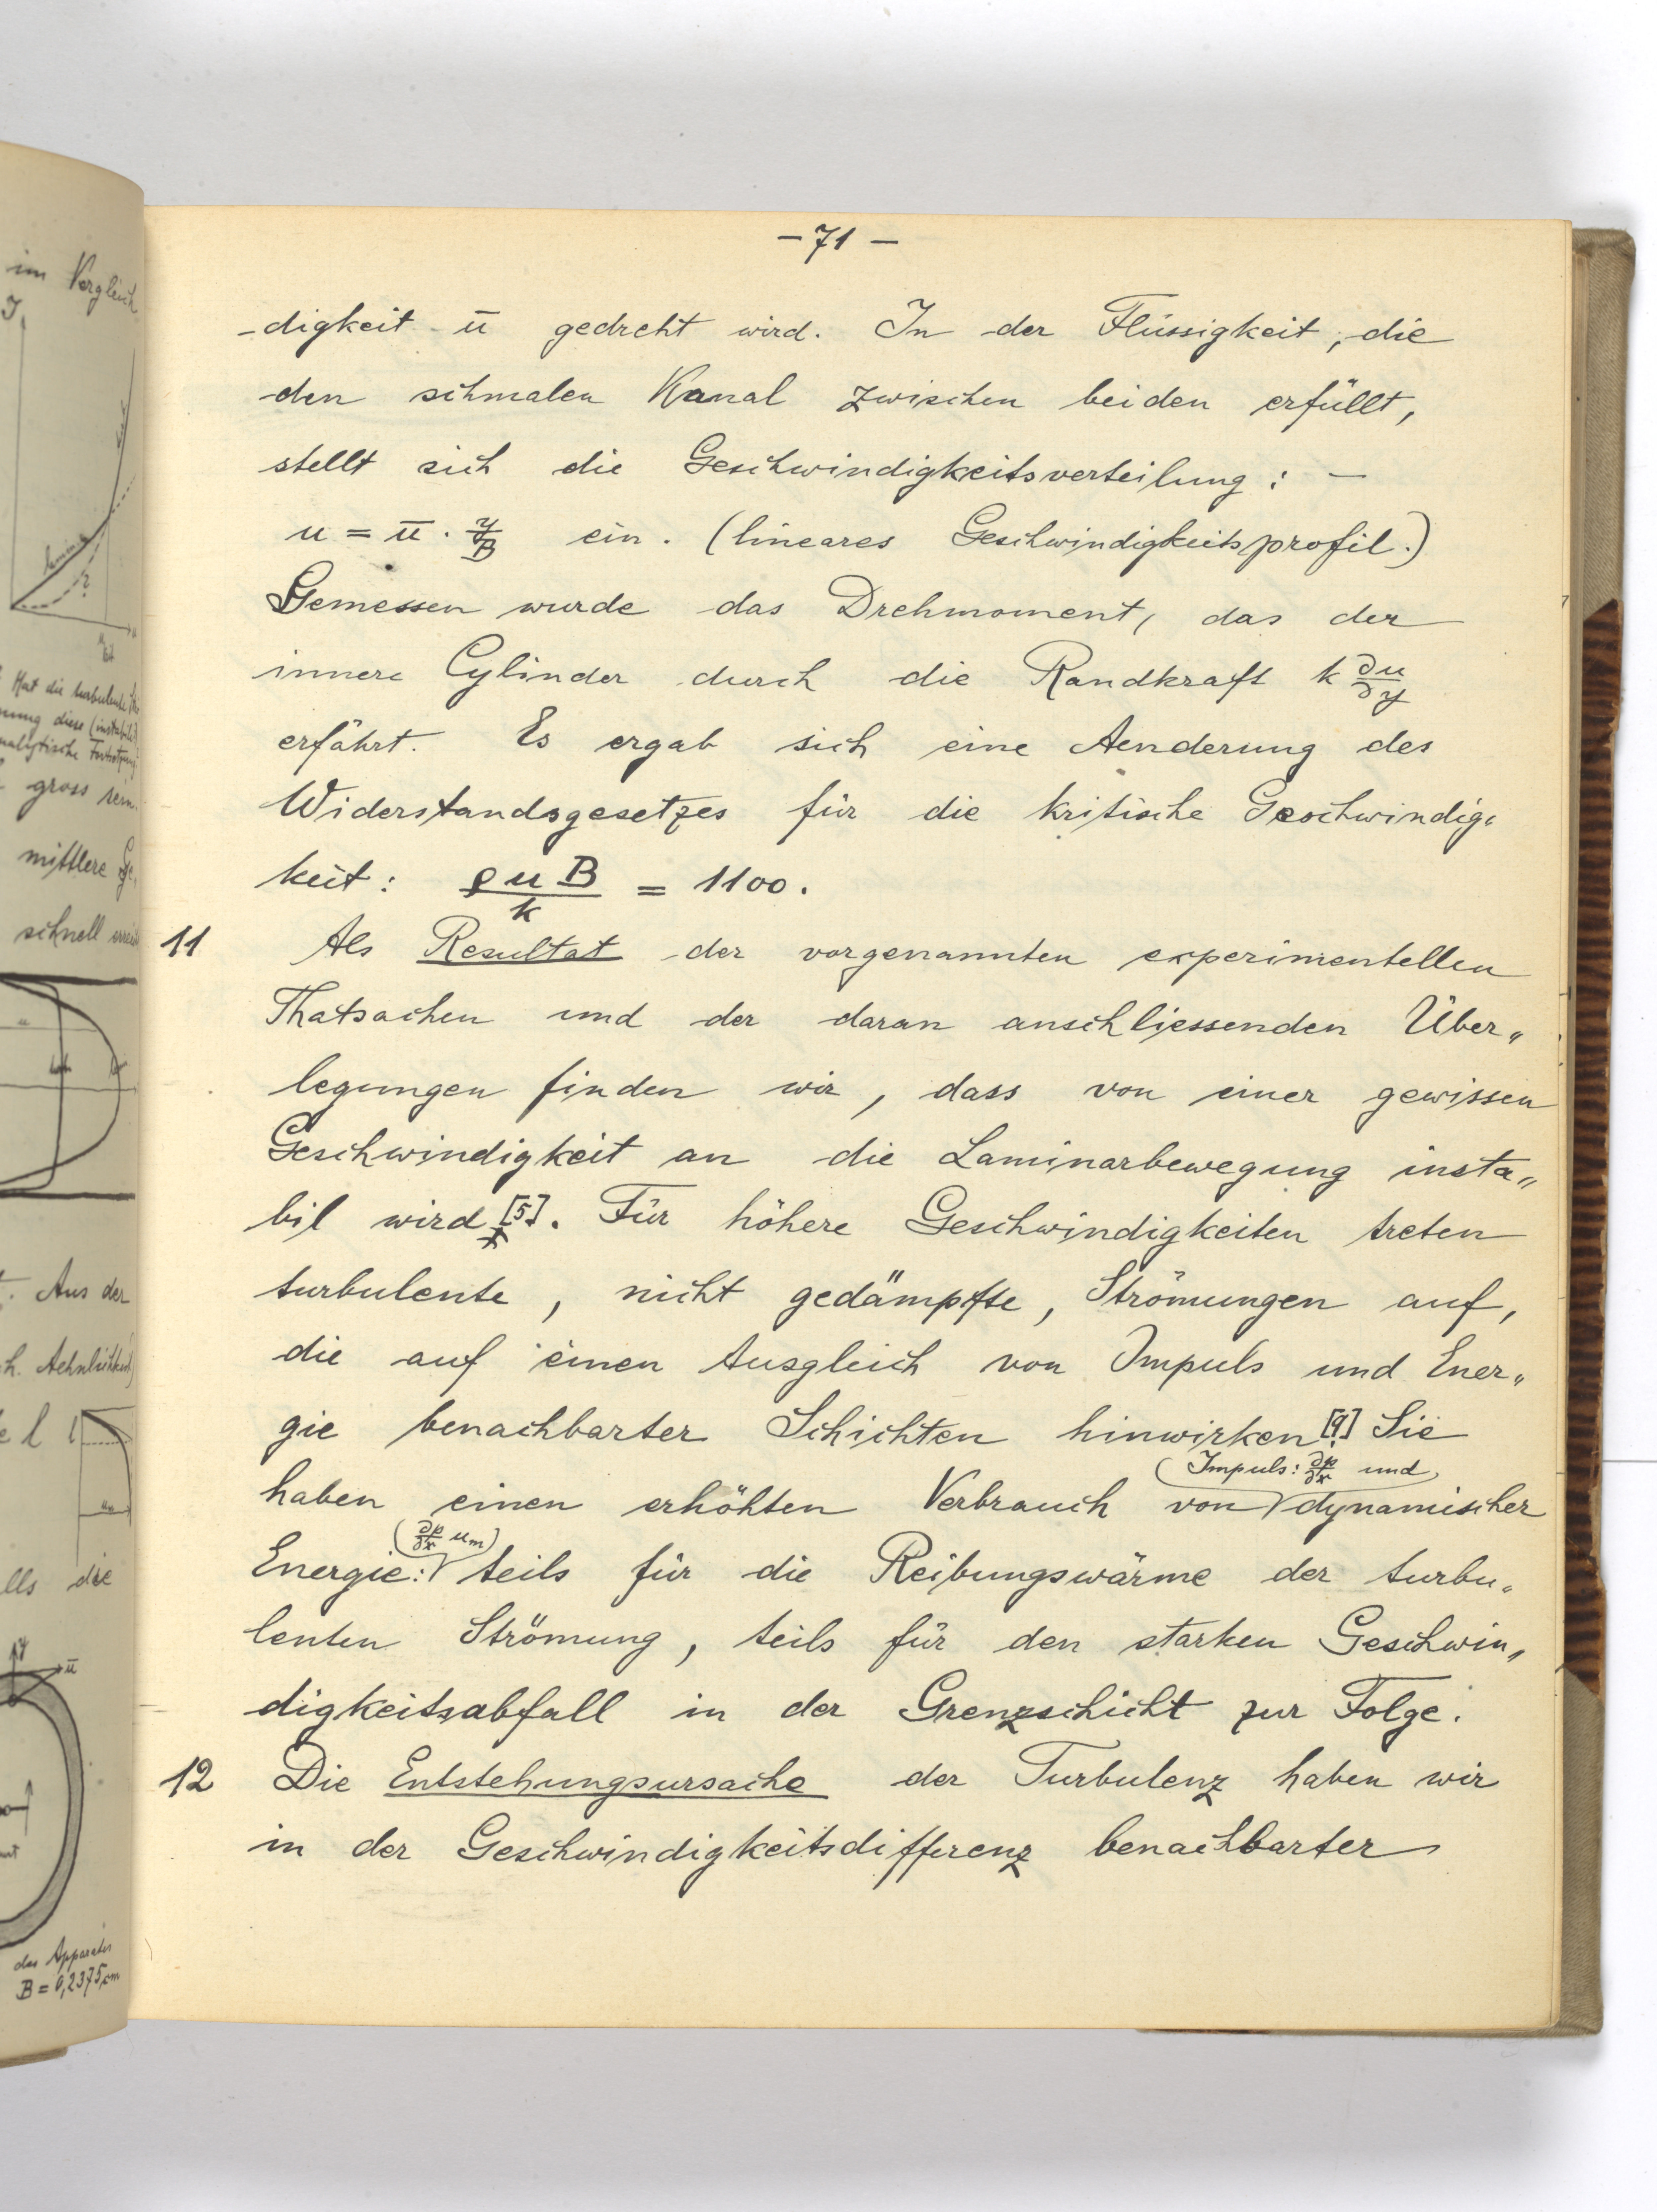 im Vergleich
J
laminar
?
Hat die turbulente
gross sein.
mittlere Ge„
schnell
Aus der
h. Aehnlichkeit
l
lls die
y
ū
des Apparates
B = 0,2375 cm
– 71 –
-digkeit ū gedreht wird. In der Flüssigkeit, die
den schmalen Kanal zwischen beiden erfüllt,
stellt sich die Geschwindigkeitsverteilung: –
u = ū · y/B ein. (lineares Geschwindigkeitsprofil.)
Gemessen wurde das Drehmoment, das der
innere Cylinder durch die Randkraft k ∂u/∂y
erfährt. Es ergab sich eine Aenderung des
Widerstandsgesetzes für die kritische Geschwindig„
keit: ρ u B / k = 1100.
11 Als Resultat der vorgenannten experimentellen
Thatsachen und der daran anschliessenden Über„
legungen finden wir, dass von einer gewissen
Geschwindigkeit an die Laminarbewegung insta„
bil wird [5]. Für höhere Geschwindigkeiten treten
turbulente, nicht gedämpfte, Strömungen auf,
die auf einen Ausgleich von Impuls und Ener„
gie benachbarter Schichten hinwirken [9]. Sie
(Impuls: ∂p/∂x und)
haben einen erhöhten Verbrauch von dynamischer
(∂p/∂x um)
Energie: teils für die Reibungswärme der turbu„
lenten Strömung, teils für den starken Geschwin„
digkeitsabfall in der Grenzschicht zur Folge.
12 Die Entstehungsursache der Turbulenz haben wir
in der Geschwindigkeitsdifferenz benachbarter